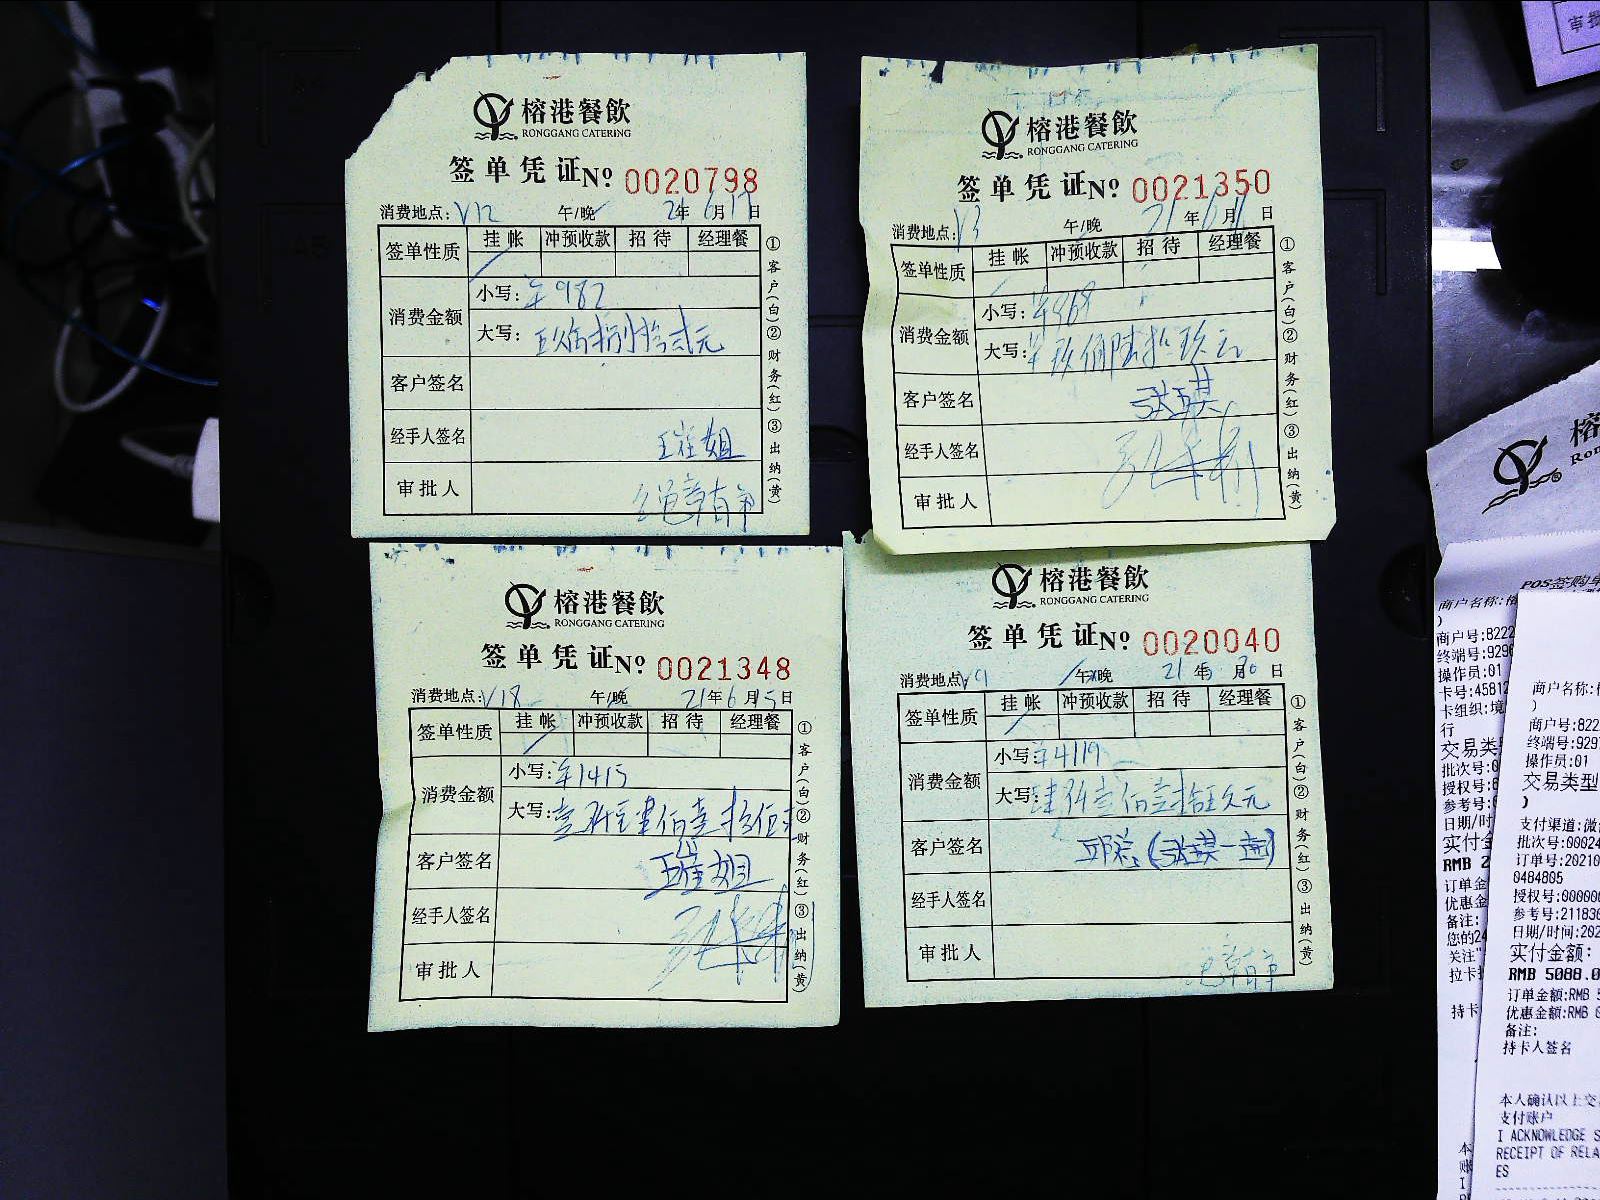 榕港餐飲
RONGGANG CATERING
签单凭证№ 0020798
消费地点:V12 午/晚 21年6月17日
签单性质 挂帐 冲预收款 招待 经理餐
消费金额 小写:¥982
大写:玖佰捌拾贰元
客户签名
经手人签名 崔姐
审批人
①客户(白)②财务(红)③出纳(黄)
榕港餐飲
RONGGANG CATERING
签单凭证№ 0021350
消费地点:V3 午/晚 21年 月 日
签单性质 挂帐 冲预收款 招待 经理餐
消费金额 小写:¥969
大写:玖佰陆拾玖元
客户签名 张琪
经手人签名
审批人
①客户(白)②财务(红)③出纳(黄)
榕港餐飲
RONGGANG CATERING
签单凭证№ 0021348
消费地点:V18 午/晚 21年6月5日
签单性质 挂帐 冲预收款 招待 经理餐
消费金额 小写:¥1415
大写:壹仟肆佰壹拾伍
客户签名 崔姐
经手人签名
审批人
①客户(白)②财务(红)③出纳(黄)
榕港餐飲
RONGGANG CATERING
签单凭证№ 0020040
消费地点:V9 午/晚 21年 月30日
签单性质 挂帐 冲预收款 招待 经理餐
消费金额 小写:¥4119
大写:肆仟壹佰壹拾玖元
客户签名 邱总(张琪一起)
经手人签名
审批人
①客户(白)②财务(红)③出纳(黄)
审批
榕
POS签购单
商户名称:榕
)
商户号:8222
终端号:929
操作员:01
卡号:45812
卡组织:境
行
交易类
批次号:0
授权号:
参考号:
日期/时
实付金
RMB 2
订单金
优惠金
备注:
您的24
关注"
拉卡
持卡
商户名称:
)
商户号:822
终端号:929
操作员:01
交易类型
)
支付渠道:微
批次号:00024
订单号:20210
0484805
授权号:000000
参考号:211830
日期/时间:202
实付金额:
RMB 5088.0
订单金额:RMB 5
优惠金额:RMB 0
备注:
持卡人签名
本人确认以上交
支付账户
I ACKNOWLEDGE S
RECEIPT OF RELA
ES